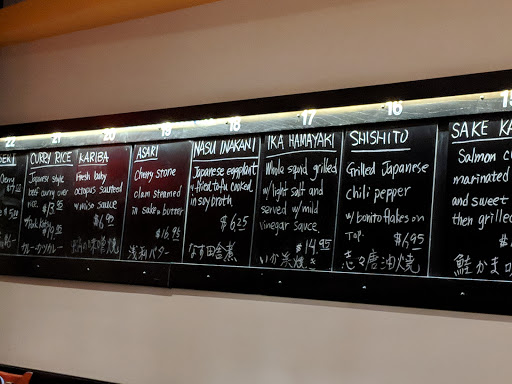 22
CURRY RICE
Japanese style
beef curry over
rice.
$13.95
カレーライス
21
KARIBA
Fresh baby
octopus sauteed
w/miso sauce
$6.95
20
ASARI
Cherry stone
clam steamed
in sake & butter
$16.95
浅利バター
19
NASU INAKANI
Japanese eggplant
+ fried tofu cooked
in soy broth
$6.25
なす田舎煮
18
IKA HAMAYAKI
Whole squid grilled
w/light salt and
served w/mild
vinegar sauce
$14.95
いか浜焼き
17
SHISHITO
Grilled Japanese
chili pepper
w/bonito flakes on
Top.
$6.95
16
SAKE KA
Salmon c
marinated
and sweet
then grilled
鮭かま